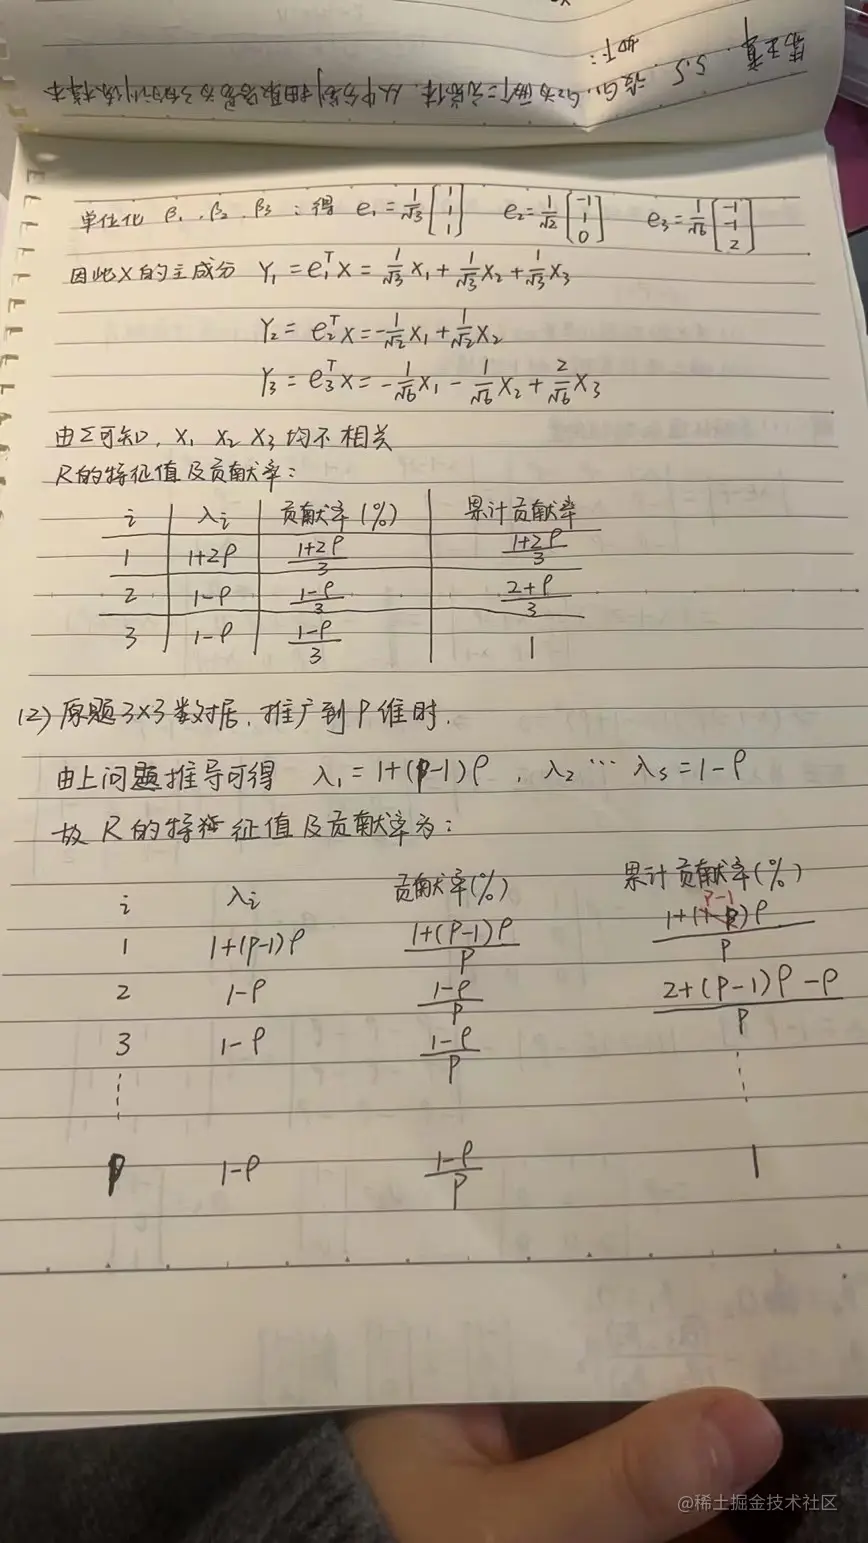 第五章
5.5 设G₁,G₂为两个二元总体,从中分别抽取容量为3的训练样本
如下:
单位化 β₁、β₂、β₃:得 e₁=1/√3[1 1 1] e₂=1/√2[-1 1 0] e₃=1/√6[-1 -1 2]
因此X的主成分 Y₁=e₁ᵀX=1/√3X₁+1/√3X₂+1/√3X₃
Y₂=e₂ᵀX=-1/√2X₁+1/√2X₂
Y₃=e₃ᵀX=-1/√6X₁-1/√6X₂+2/√6X₃
由Σ可知,X₁ X₂ X₃均不相关
R的特征值及贡献率:
i λi 贡献率(%) 累计贡献率
1 1+2ρ (1+2ρ)/3 (1+2ρ)/3
2 1-ρ (1-ρ)/3 (2+ρ)/3
3 1-ρ (1-ρ)/3 1
(2)原题3×3数据,推广到P维时,
由上问题推导可得 λ₁=1+(p-1)ρ,λ₂…λs=1-ρ
故R的特征值及贡献率为:
i λi 贡献率(%) 累计贡献率(%)
1 1+(p-1)ρ (1+(p-1)ρ)/p (1+(p-1)ρ)/p
2 1-ρ (1-ρ)/p (2+(p-1)ρ-ρ)/p
3 1-ρ (1-ρ)/p
p 1-ρ (1-ρ)/p 1
@稀土掘金技术社区